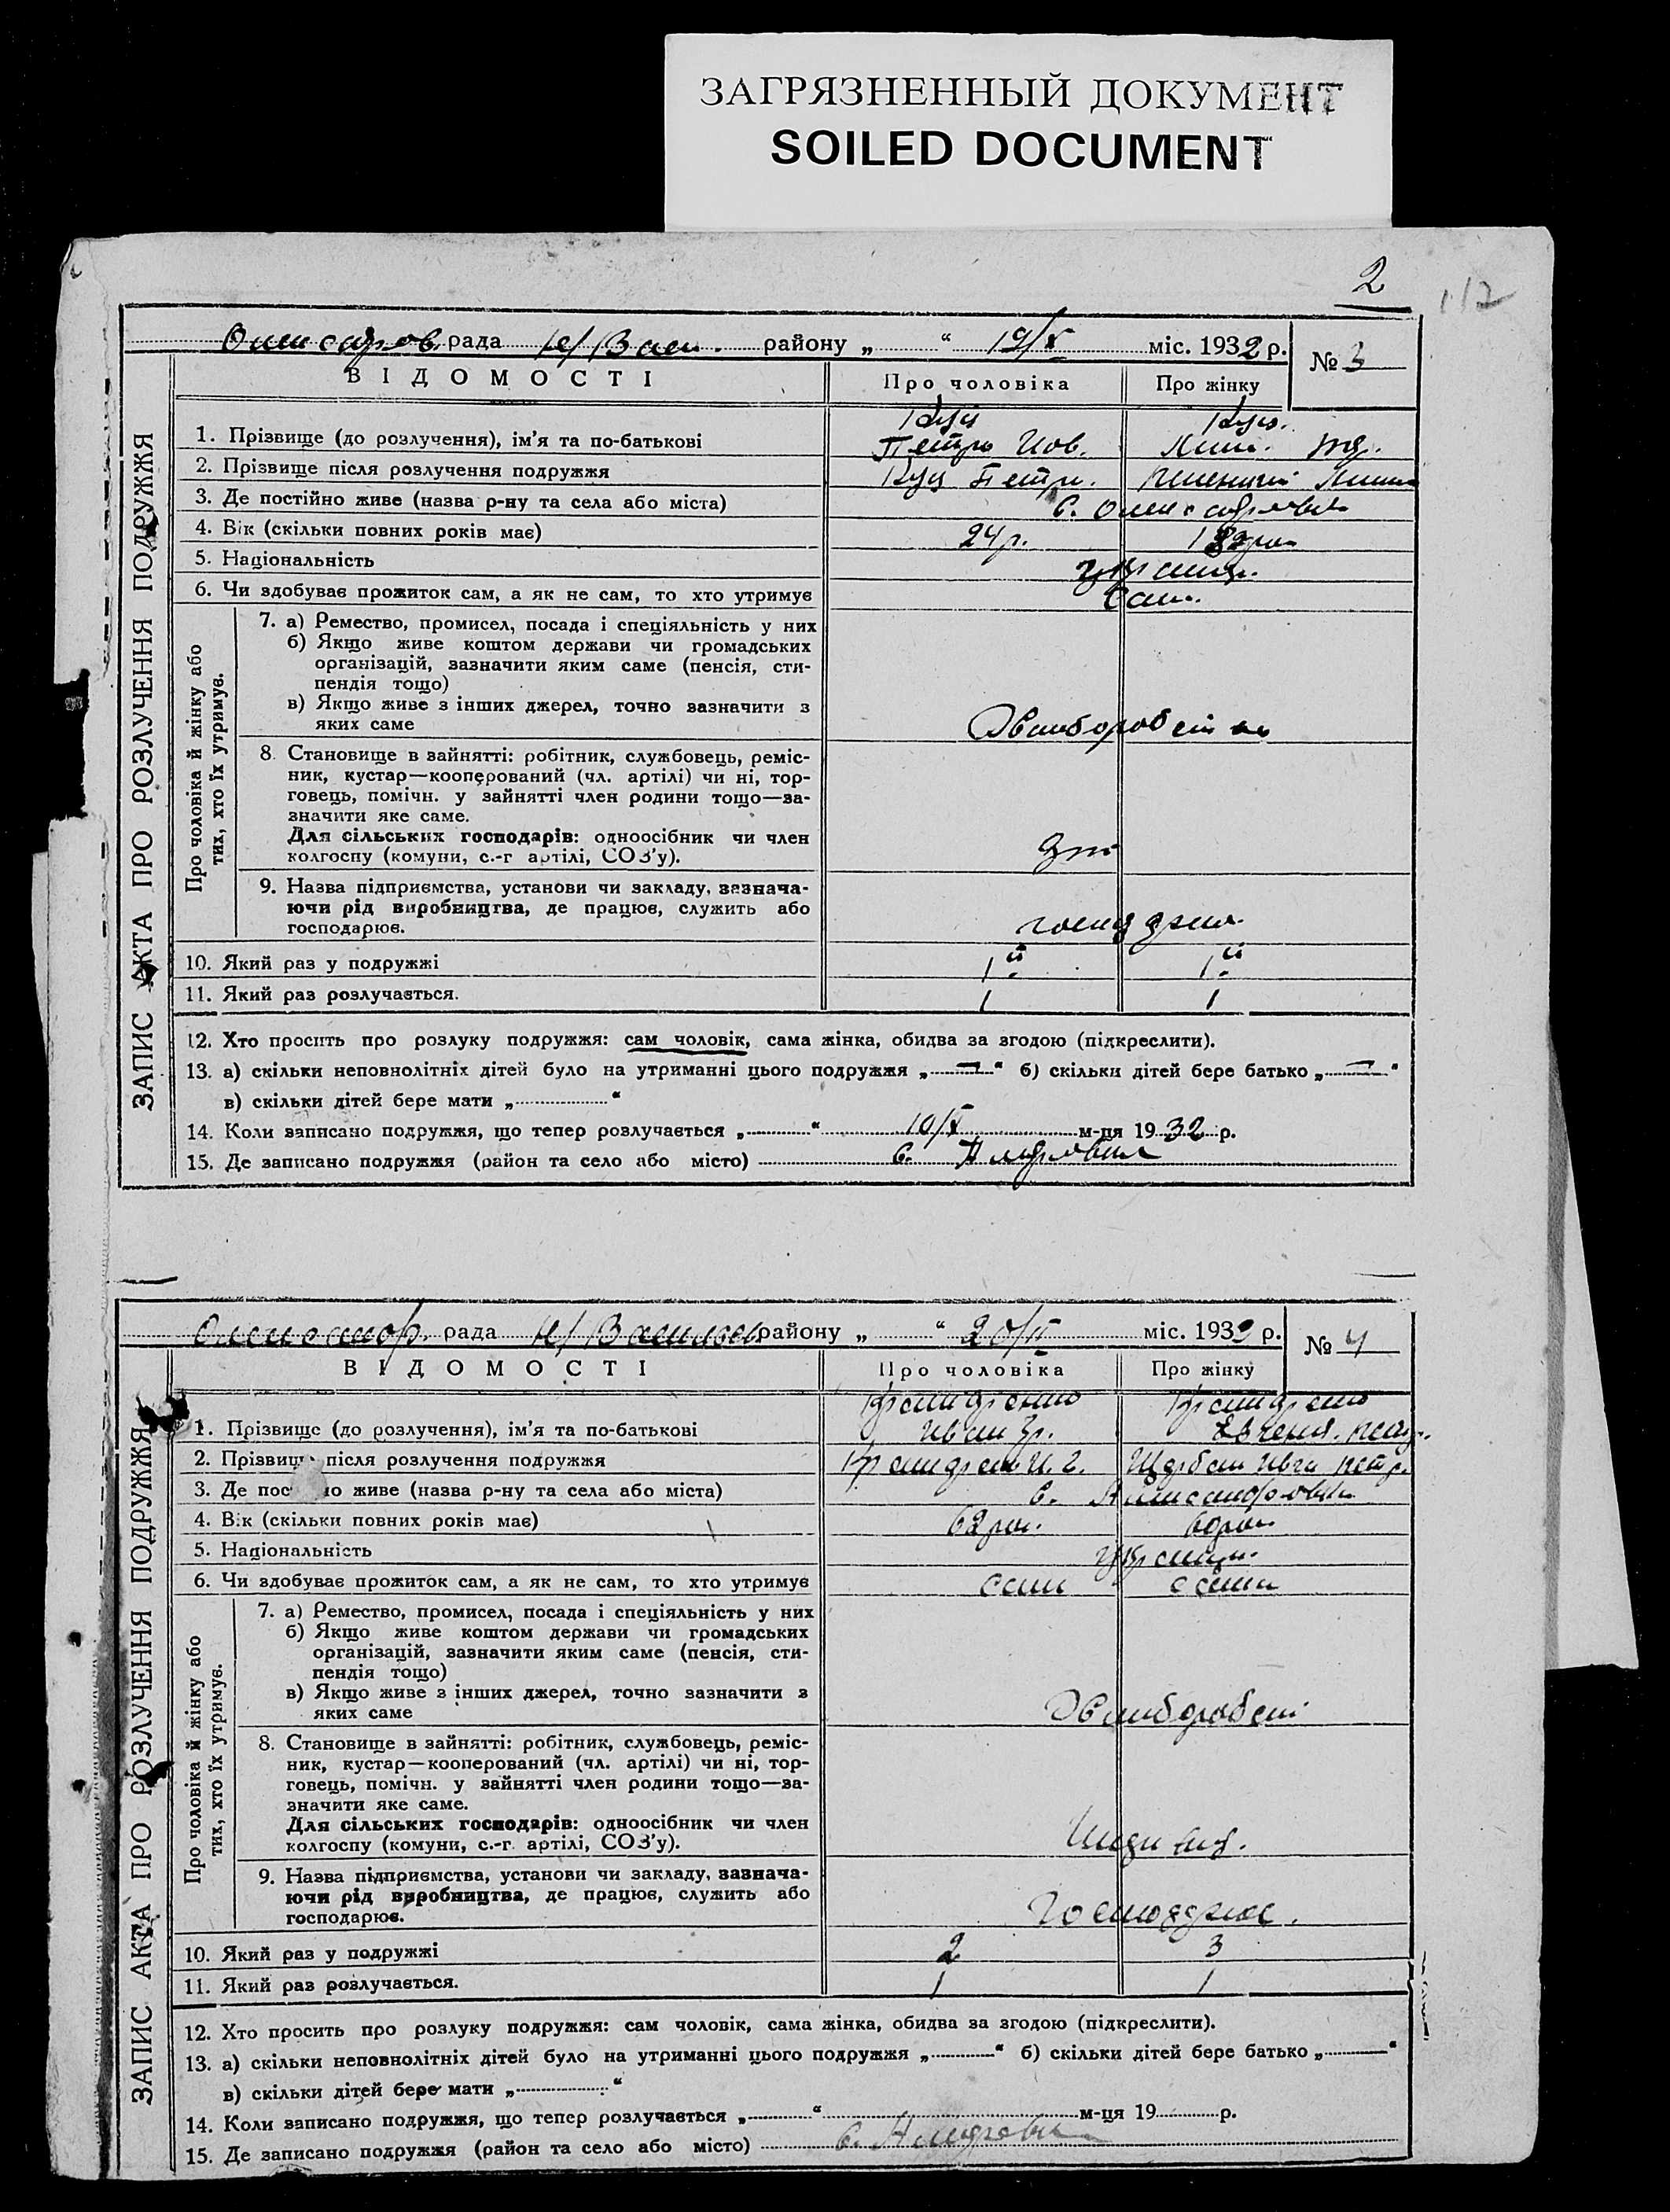 ЗАГРЯЗНЕННЫЙ ДОКУМЕНТ
SOILED DOCUMENT
2
112
рада Н/Васи. району „ “ 19/X міс. 1932 р. № 3
ВІДОМОСТІ Про чоловіка Про жінку
ЗАПИС АКТА ПРО РОЗЛУЧЕННЯ ПОДРУЖЖЯ
Куц Куц.
1. Прізвище (до розлучення), ім'я та по-батькові Петро Иов.
2. Прізвище після розлучення подружжя Куц Петр.
3. Де постійно живе (назва р-ну та села або міста) с.
4. Вік (скільки повних років має) 24 р.
5. Національність україн.
6. Чи здобуває прожиток сам, а як не сам, то хто утримує сам.
Про чоловіка й жінку або тих, хто їх утримує.
7. а) Ремество, промисел, посада і спеціяльність у них
б) Якщо живе коштом держави чи громадських
організацій, зазначити яким саме (пенсія, сти-
пендія тощо)
в) Якщо живе з інших джерел, точно зазначити з
яких саме
8. Становище в зайнятті: робітник, службовець, реміс-
ник, кустар—кооперований (чл. артілі) чи ні, тор-
говець, помічн. у зайнятті член родини тощо—за-
значити яке саме.
Для сільських господарів: одноосібник чи член
колгоспу (комуни, с.-г артілі, СОЗ'у).
9. Назва підприємства, установи чи закладу, зазнача-
ючи рід виробництва, де працює, служить або
господарює.
10. Який раз у подружжі 1й 1й
11. Який раз розлучається. 1 1
12. Хто просить про розлуку подружжя: сам чоловік, сама жінка, обидва за згодою (підкреслити).
13. а) скільки неповнолітніх дітей було на утриманні цього подружжя „ — “ б) скільки дітей бере батько „ — “
в) скільки дітей бере мати „ “
14. Коли записано подружжя, що тепер розлучається „ “ 10/X м-ця 1932 р.
15. Де записано подружжя (район та село або місто) с.
рада Н/Васильев району „ “ 20/ міс. 193 р. № 4
ВІДОМОСТІ Про чоловіка Про жінку
ЗАПИС АКТА ПРО РОЗЛУЧЕННЯ ПОДРУЖЖЯ
1. Прізвище (до розлучення), ім'я та по-батькові Иван Гр.
2. Прізвище після розлучення подружжя И. Г.
3. Де постійно живе (назва р-ну та села або міста) с.
4. Вік (скільки повних років має) 62 рок. 60 рок
5. Національність україн.
6. Чи здобуває прожиток сам, а як не сам, то хто утримує сам сама
Про чоловіка й жінку або тих, хто їх утримує.
7. а) Ремество, промисел, посада і спеціяльність у них
б) Якщо живе коштом держави чи громадських
організацій, зазначити яким саме (пенсія, сти-
пендія тощо)
в) Якщо живе з інших джерел, точно зазначити з
яких саме
8. Становище в зайнятті: робітник, службовець, реміс-
ник, кустар—кооперований (чл. артілі) чи ні, тор-
говець, помічн. у зайнятті член родини тощо—за-
значити яке саме.
Для сільських господарів: одноосібник чи член
колгоспу (комуни, с.-г. артілі, СОЗ'у).
9. Назва підприємства, установи чи закладу, зазнача-
ючи рід виробництва, де працює, служить або
господарює.
10. Який раз у подружжі 2 3
11. Який раз розлучається. 1 1
12. Хто просить про розлуку подружжя: сам чоловік, сама жінка, обидва за згодою (підкреслити).
13. а) скільки неповнолітніх дітей було на утриманні цього подружжя „ “ б) скільки дітей бере батько „ “
в) скільки дітей бере мати „ “
14. Коли записано подружжя, що тепер розлучається „ “ м-ця 19 р.
15. Де записано подружжя (район та село або місто) с.